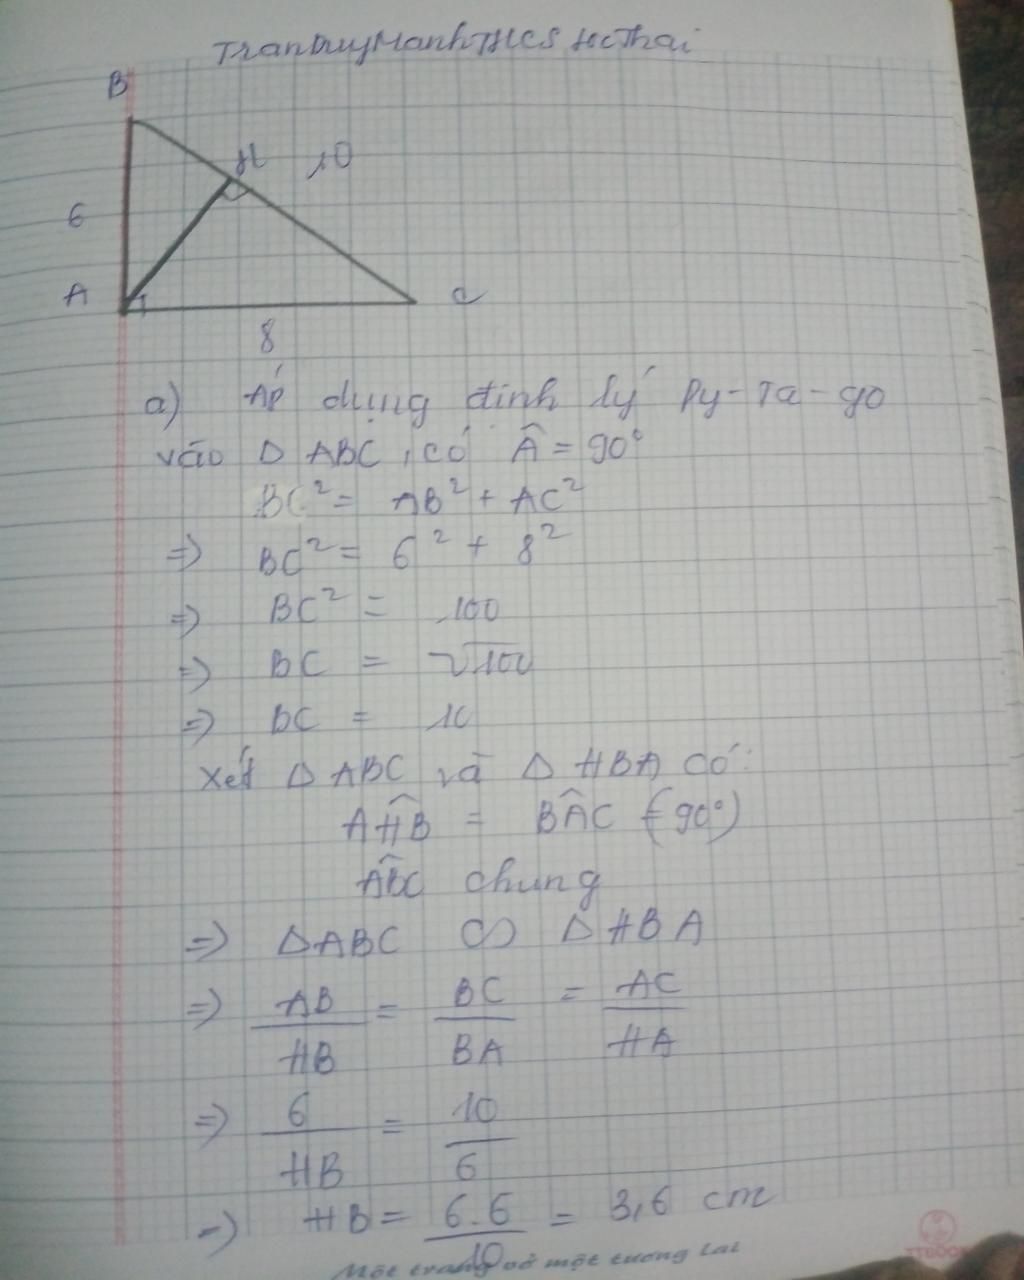 TranDuyManhTHCS HcThai
B
H 10
6
A C
8
a) Áp dụng định lý Py-Ta-go
vào Δ ABC, có Â = 90°
BC² = AB² + AC²
=> BC² = 6² + 8²
=> BC² = 100
=> BC = √100
=> BC = 10
Xét Δ ABC và Δ HBA có:
AĤB = BÂC (= 90°)
AB̂C chung
=> ΔABC ∽ ΔHBA
=> AB/HB = BC/BA = AC/HA
=> 6/HB = 10/6
=> HB = 6.6/10 = 3,6 cm
Một trang vở một tương lai
TTBOOK